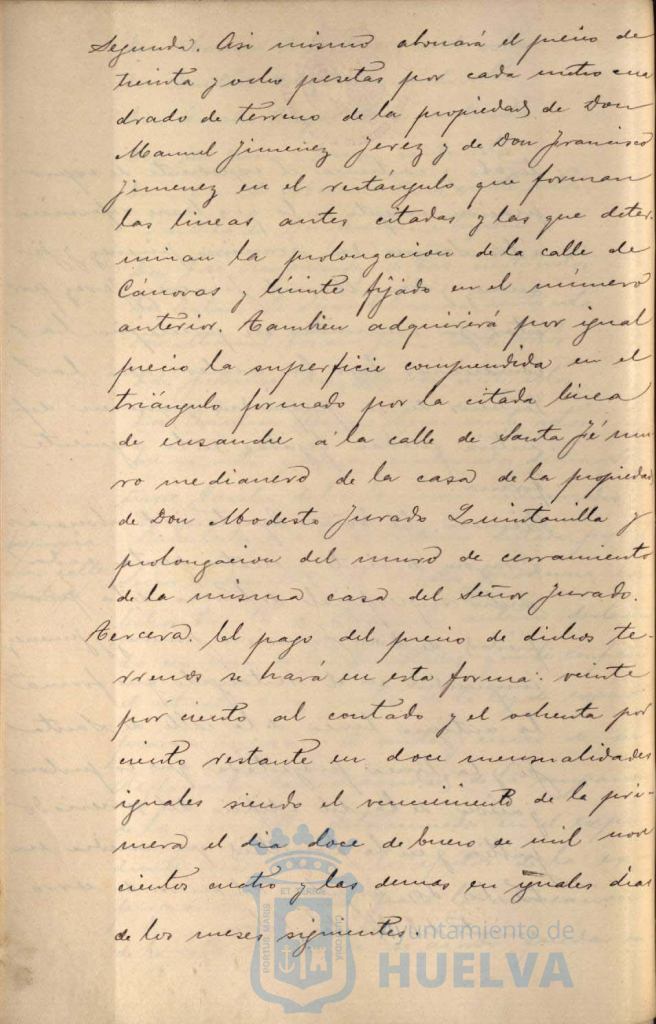 Segunda. Asi mismo abonará el precio de
treinta y ocho pesetas por cada metro cua
drado de terreno de la propiedad de Don
Manuel Jimenez Jerez y de Don Francisco
Jimenez en el rectángulo que forman
las lineas antes citadas y las que deter-
minan la prolongacion de la calle de
Cánovas y limite fijado en el número
anterior. Tambien adquirirá por igual
precio la superficie comprendida en el
triángulo formado por la citada linea
de ensanche á la calle de Santa Fé mu-
ro medianero de la casa de la propiedad
de Don Modesto Jurado Quintanilla y
prolongacion del muro de cerramiento
de la misma casa del Señor Jurado.
Tercera. El pago del precio de dichos te-
rrenos se hará en esta forma: veinte
por ciento al contado y el ochenta por
ciento restante en doce mensualidades
iguales siendo el vencimiento de la pri-
mera el dia doce de Enero de mil nove
cientos cuatro y las demas en iguales dias
de los meses siguientes.
PORTUS MARIS ET TERRÆ CUSTODIA
Ayuntamiento de
HUELVA